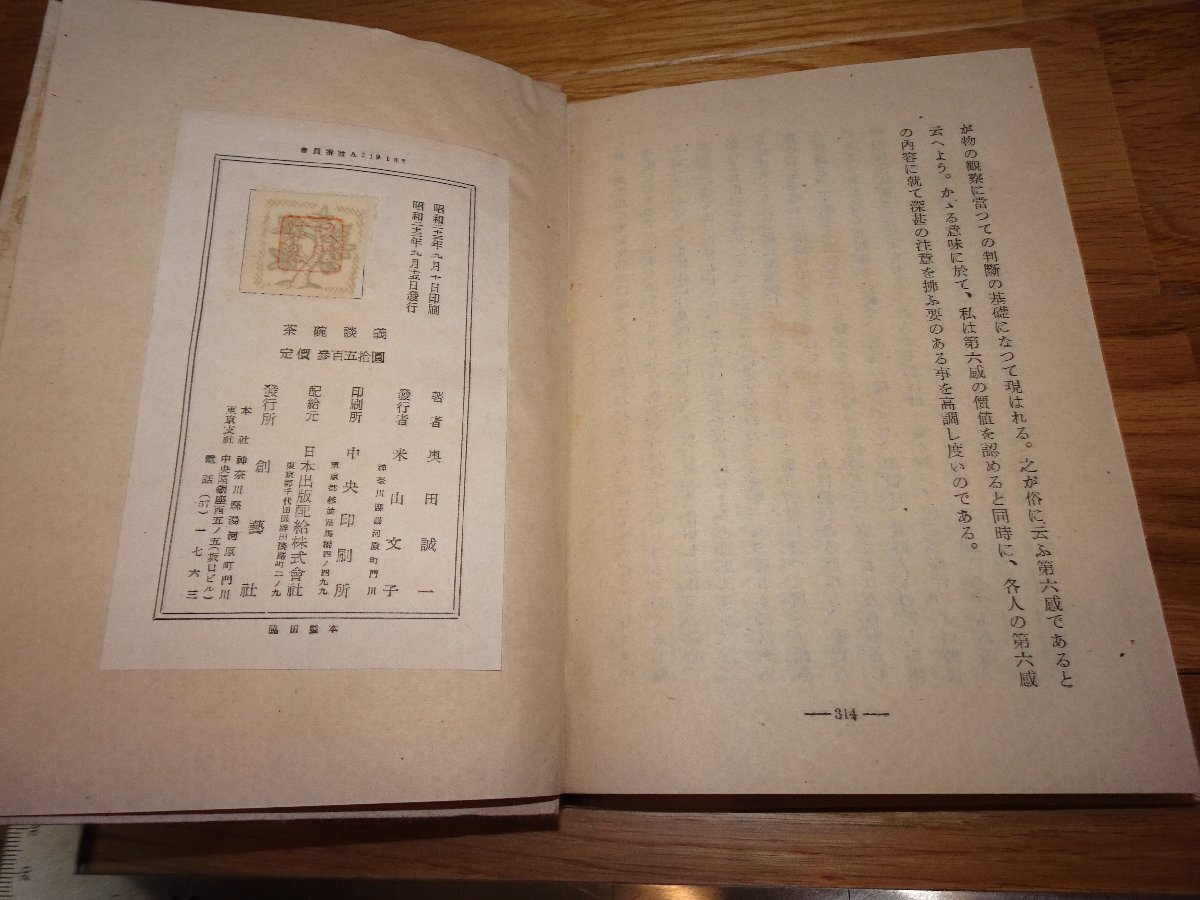 が物の観察に當つての判斷の基礎になつて現はれる。之が俗に云ふ第六感であると
云へよう。かゝる意味に於て、私は第六感の價値を認めると同時に、各人の第六感
の內容に就て深甚の注意を拂ふ要のある事を高調し度いのである。
— 314 —
會員番號A219188
昭和二十三年九月十日印刷
昭和二十三年九月十五日發行
茶碗談義
定價參百五拾圓
著者 奥田誠一
神奈川縣湯河原町門川
發行者 米山文子
印刷所 中央印刷所
東京都千代田區神田淡路町二ノ九
配給元 日本出版配給株式會社
發行所 創藝社
本社 神奈川縣湯河原町門川
東京支社 中央區銀座西五ノ五(坂口ビル)
電話(57)一七六三